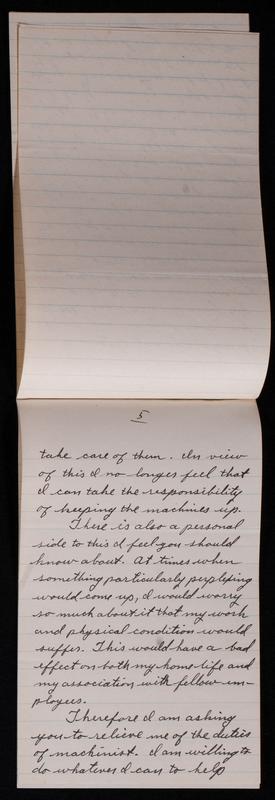 5
take care of them. In view
of this I no longer feel that
I can take the responsibility
of keeping the machines up.
There is also a personal
side to this I feel you should
know about. At times when
something particularly perplexing
would come up, I would worry
so much about it that my work
and physical condition would
suffer. This would have a bad
effect on both my home life and
my association with fellow em-
ployees.
Therefore I am asking
you to relieve me of the duties
of machinist. I am willing to
do whatever I can to help